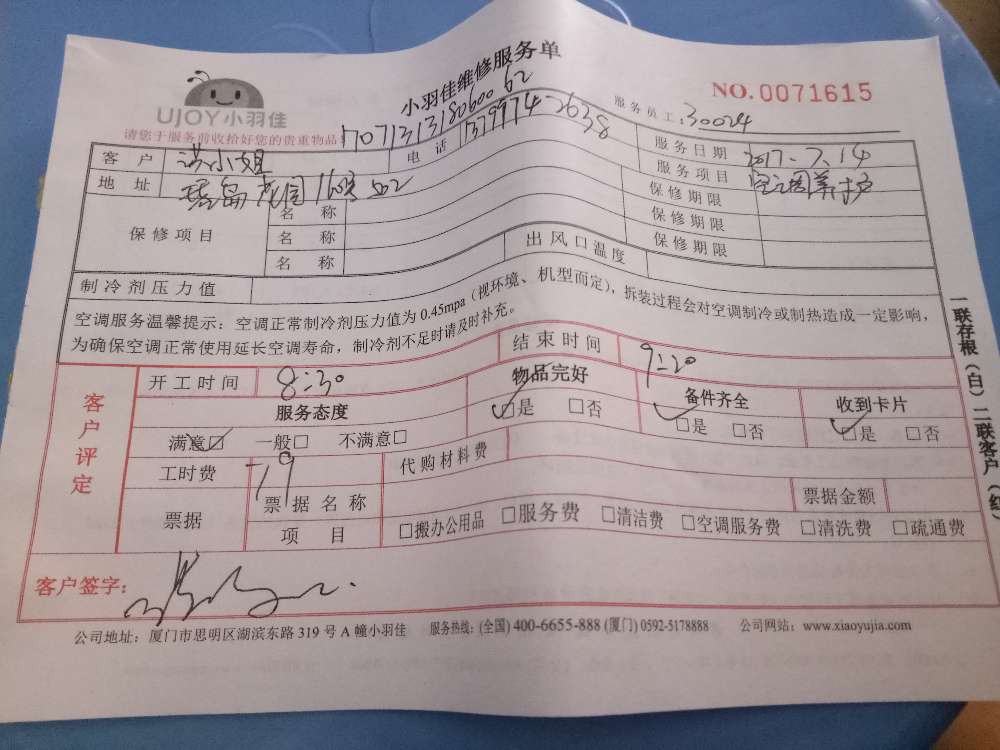 UJOY小羽佳
小羽佳维修服务单
NO.0071615
请您于服务前收拾好您的贵重物品!
服务员工:30024
客户 洪小姐 电话 服务日期 2017-7.14
地址 服务项目 空调养护
保修项目 名称 保修期限
名称 保修期限
名称 保修期限
制冷剂压力值 出风口温度
空调服务温馨提示:空调正常制冷剂压力值为0.45mpa(视环境、机型而定),拆装过程会对空调制冷或制热造成一定影响,
为确保空调正常使用延长空调寿命,制冷剂不足时请及时补充。
客户评定
开工时间 8:30 结束时间 9:20
服务态度 物品完好 备件齐全 收到卡片
满意□ 一般□ 不满意□ □是 □否 □是 □否 □是 □否
工时费 79 代购材料费
票据 票据名称 票据金额
项目 □搬办公用品 □服务费 □清洁费 □空调服务费 □清洗费 □疏通费
客户签字:
公司地址:厦门市思明区湖滨东路319号A幢小羽佳 服务热线:(全国)400-6655-888(厦门)0592-5178888 公司网站:www.xiaoyujia.com
一联存根(白)二联客户(红